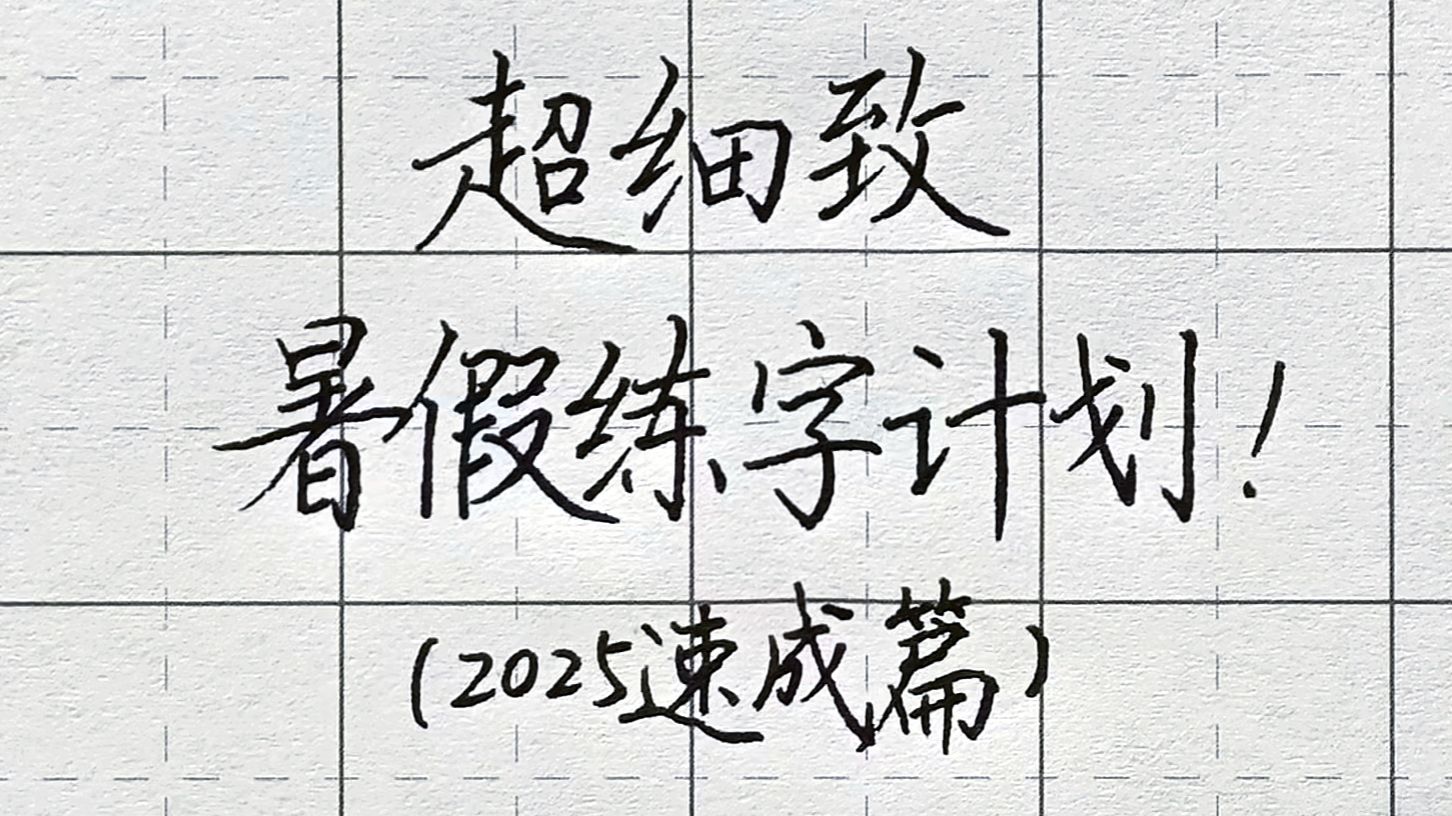 超细致
暑假练字计划！
（2025速成篇）